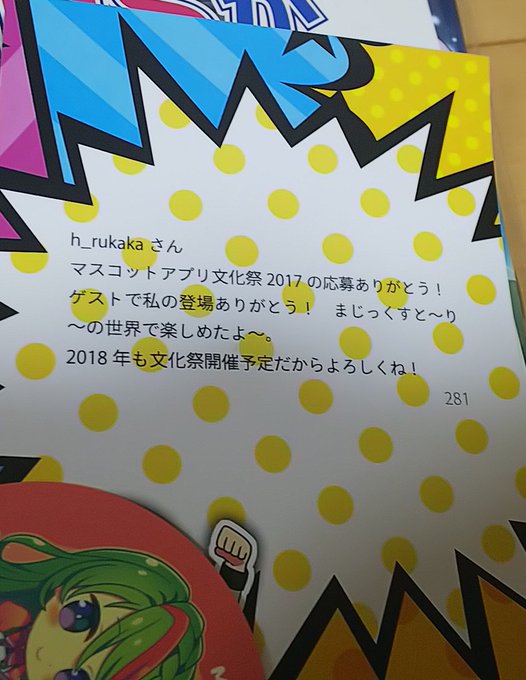 h_rukaka さん
マスコットアプリ文化祭 2017 の応募ありがとう！
ゲストで私の登場ありがとう！　まじっくすと〜り
〜の世界で楽しめたよ〜。
2018 年も文化祭開催予定だからよろしくね！
281